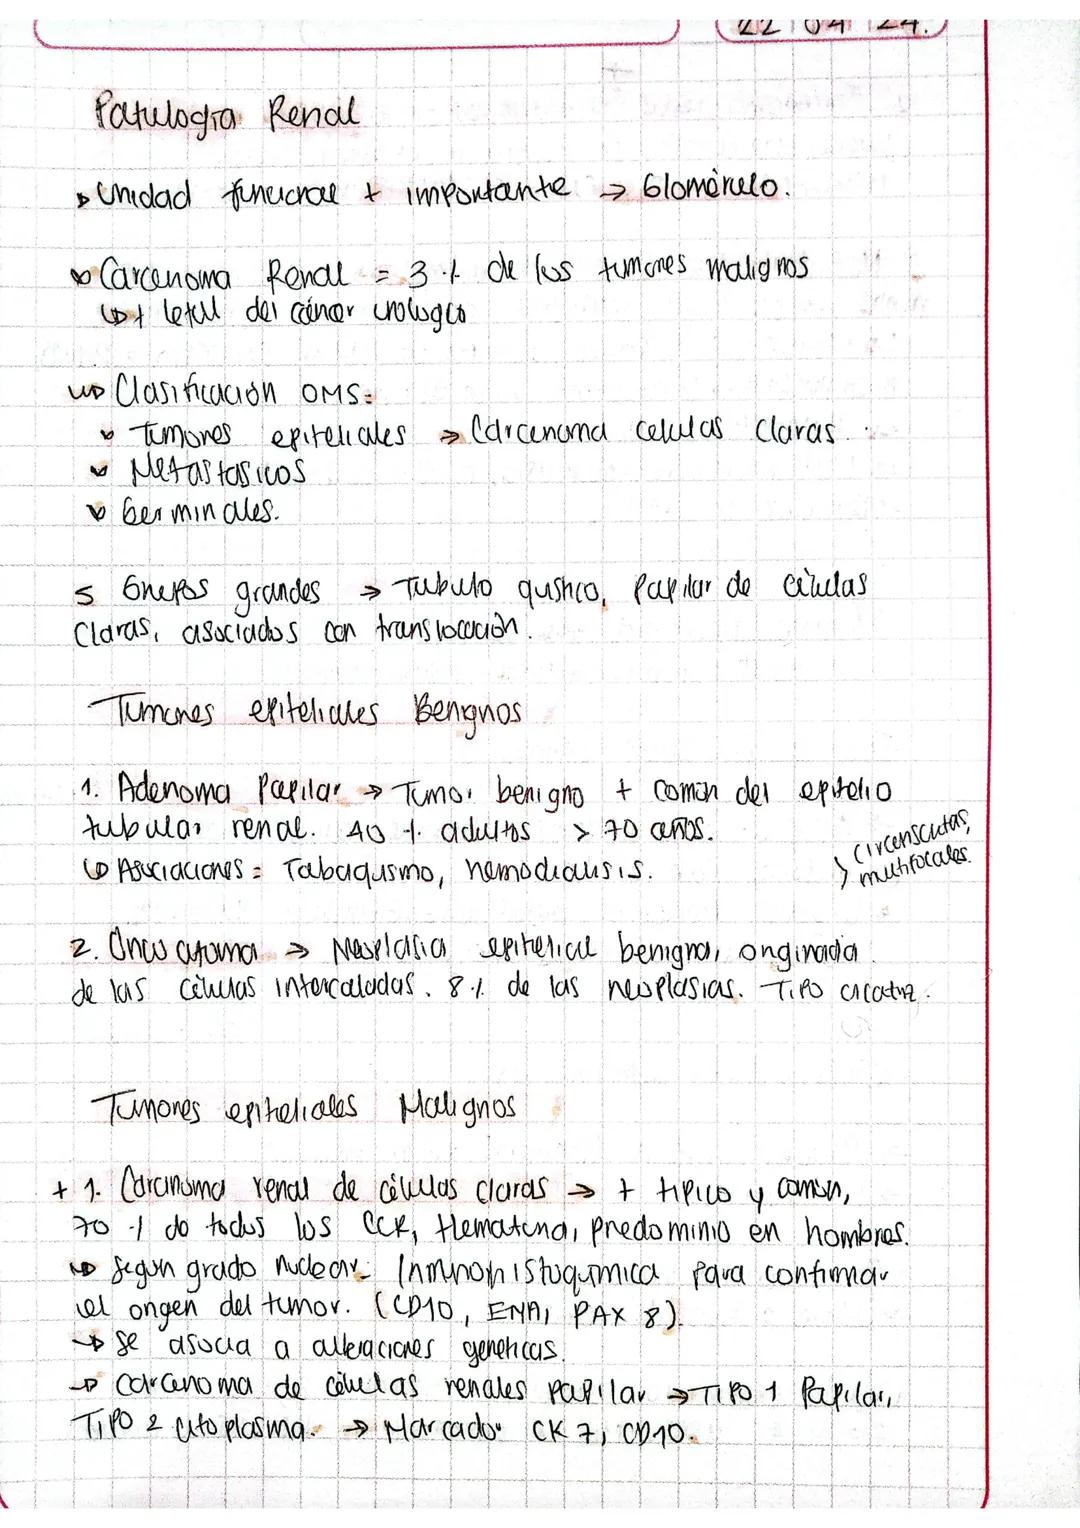 22 04 24.
Patología Renal
Unidad funcional + importante → Glomérulo.
Carcenoma Renal = 3 % de los tumores malignos
↳ + letal del cáncer urologico
Clasificación OMS:
Tumores epiteliales → Carcenoma celulas claras.
Metastasicos
Germinales.
5 Grupos grandes → Tubulo quistico, Papilar de células
Claras, asociados con translocación.
Tumores epiteliales Benignos
1. Adenoma Papilar → Tumor benigno + común del epitelio
tubular renal. 40 % adultos > 70 años.
> circunscritas,
multifocales.
↳ Asociaciones = Tabaquismo, hemodialisis.
2. Oncocitoma → Neoplasia epitelial benigna, originada
de las células intercaladas. 8 % de las neoplasias. Tipo cicatriz.
Tumores epiteliales Malignos
+ 1. Carcinoma renal de células claras → + tipico y común,
70 % do todos los CCR, Hematuria, predominio en hombres.
↳ Según grado nuclear: Inmunohistoquimica para confirmar
el origen del tumor. (CD10, EMA, PAX 8).
→ Se asocia a alteraciones geneticas.
→ Carcenoma de células renales papilar → TIPO 1 Papilar,
TIPO 2 citoplasma. → Marcador CK 7, CD10.